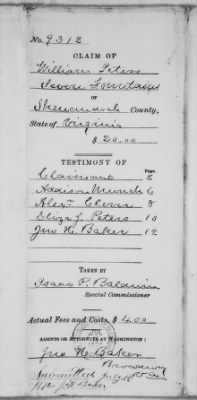 No. 9312
CLAIM OF
William Peters
Seven Fountains
OF
Shenandoah County,
State of Virginia
$20.00
TESTIMONY OF
Page.
Claimant 2
Addison Munch 6
Alex. Clem 8
Eliza J. Peters 10
Jno H. Baker 12
TAKEN BY
Isaac P. Baldwin
Special Commissioner
Actual Fees and Costs, $4.00
AGENTS OR ATTORNEYS AT WASHINGTON:
Jno H. Baker
Broadway
Submitted
Baker